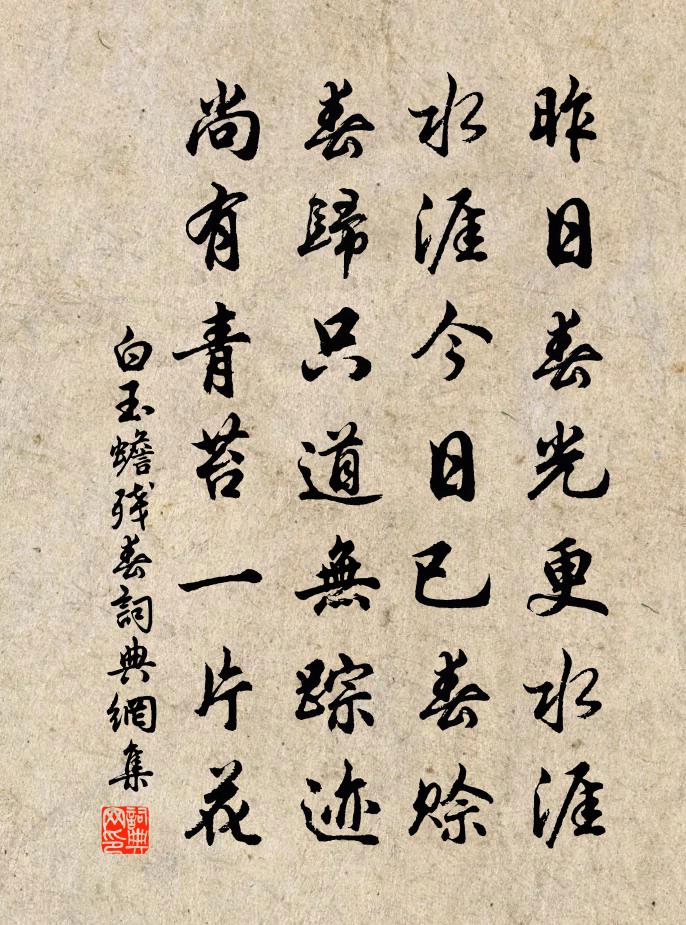 昨日春光更水涯
水涯今日已春賒
春歸只道無踪迹
尚有青苔一片花
白玉蟾残春詞典網集
詞典网印